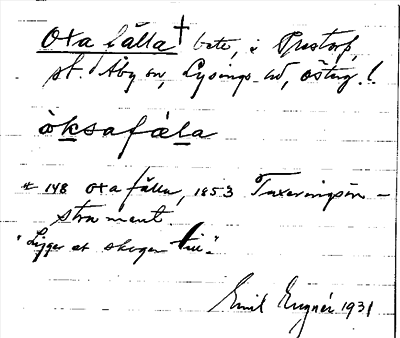 Oxafälla † bete, i Tystorp,
st. Åby sn, Lysings hd, östug.!
òksafála
# 148 oxafälla, 1853 Taxeringsin-
strument.
"Ligger at skogen till".
Emil Eugnér 1931